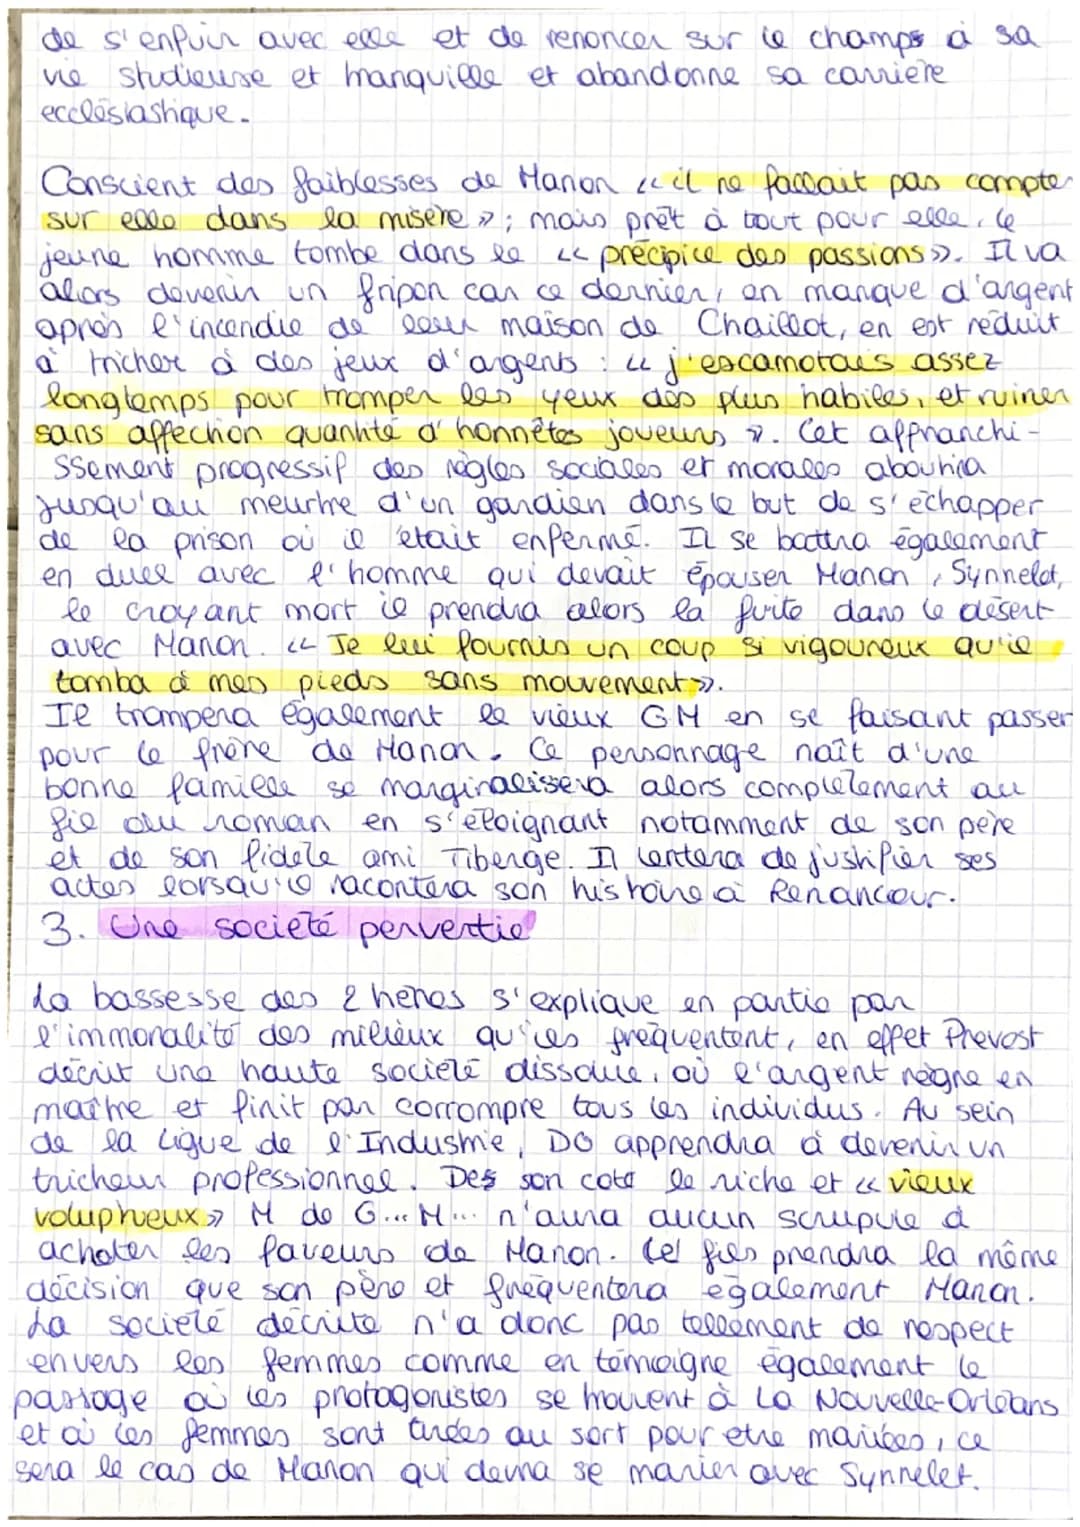 de s'enfuir avec elle et de renoncer sur le champs à sa
vie studieuse et tranquille et abandonne sa carrière
ecclésiastique.
Conscient des faiblesses de Manon « il ne fallait pas compter
sur elle dans la misère » ; mais prêt à tout pour elle, le
jeune homme tombe dans le « précipice des passions ». Il va
alors devenir un fripon car ce dernier, en manque d'argent
après l'incendie de leur maison de Chaillot, en est réduit
à tricher à des jeux d'argents : « j'escamotais assez
longtemps pour tromper les yeux des plus habiles, et ruiner
sans affection quantité d'honnêtes joueurs ». Cet affranchi-
ssement progressif des règles sociales et morales aboutira
jusqu'au meurtre d'un gardien dans le but de s'échapper
de la prison où il était enfermé. Il se battra également
en duel avec l'homme qui devait épouser Manon, Synnelet,
le croyant mort il prendra alors la fuite dans le désert
avec Manon. « Je lui fournis un coup si vigoureux qu'il
tomba à mes pieds sans mouvement ».
Il trompera également le vieux G.M en se faisant passer
pour le frère de Manon. Ce personnage naît d'une
bonne famille se marginalisera alors complètement au
fil du roman en s'éloignant notamment de son père
et de son fidèle ami Tiberge. Il tentera de justifier ses
actes lorsqu'il racontera son histoire à Renancour.
3. Une société pervertie
La bassesse des 2 héros s'explique en partie par
l'immoralité des milieux qu'ils fréquentent, en effet Prévost
décrit une haute société dissolue, où l'argent règne en
maître et finit par corrompre tous les individus. Au sein
de la Ligue de l'Industrie, DG apprendra à devenir un
tricheur professionnel. Des son coté le riche et « vieux
voluptueux » M de G... M... n'aura aucun scrupule à
acheter les faveurs de Manon. Le fils prendra la même
décision que son père et fréquentera également Manon.
La société décrite n'a donc pas tellement de respect
envers les femmes comme en témoigne également le
passage où les protagonistes se trouvent à La Nouvelle-Orléans
et où les femmes sont tirées au sort pour etre mariées, ce
sera le cas de Manon qui devra se marier avec Synnelet.